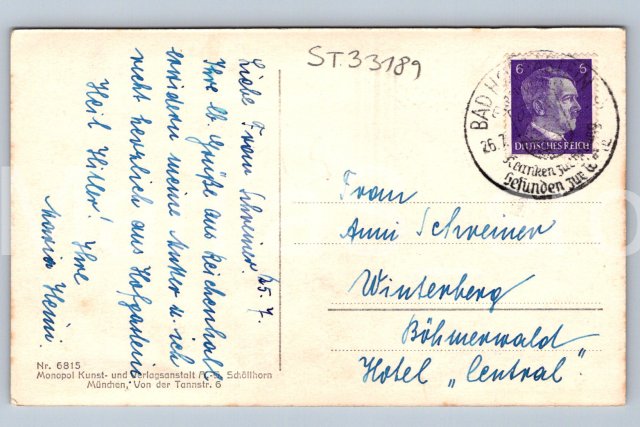 ST.33189
Liebe Frau Schreiner 25.7.
Ihre lb. Grüße aus Reichenhall
erwidern meine Mutter u. ich
recht herzlich aus Hofgastein
Heil Hitler! Ihre
Maria Henn.
6 6
DEUTSCHES REICH
BAD HO
26.7.
Kranken zur
Gesunden zur
Frau
Anni Schreiner
Winterberg
Böhmerwald
Hotel „Central".
Nr. 6815
Monopol Kunst- und Verlagsanstalt Schöllhorn
München, Von der Tannstr. 6